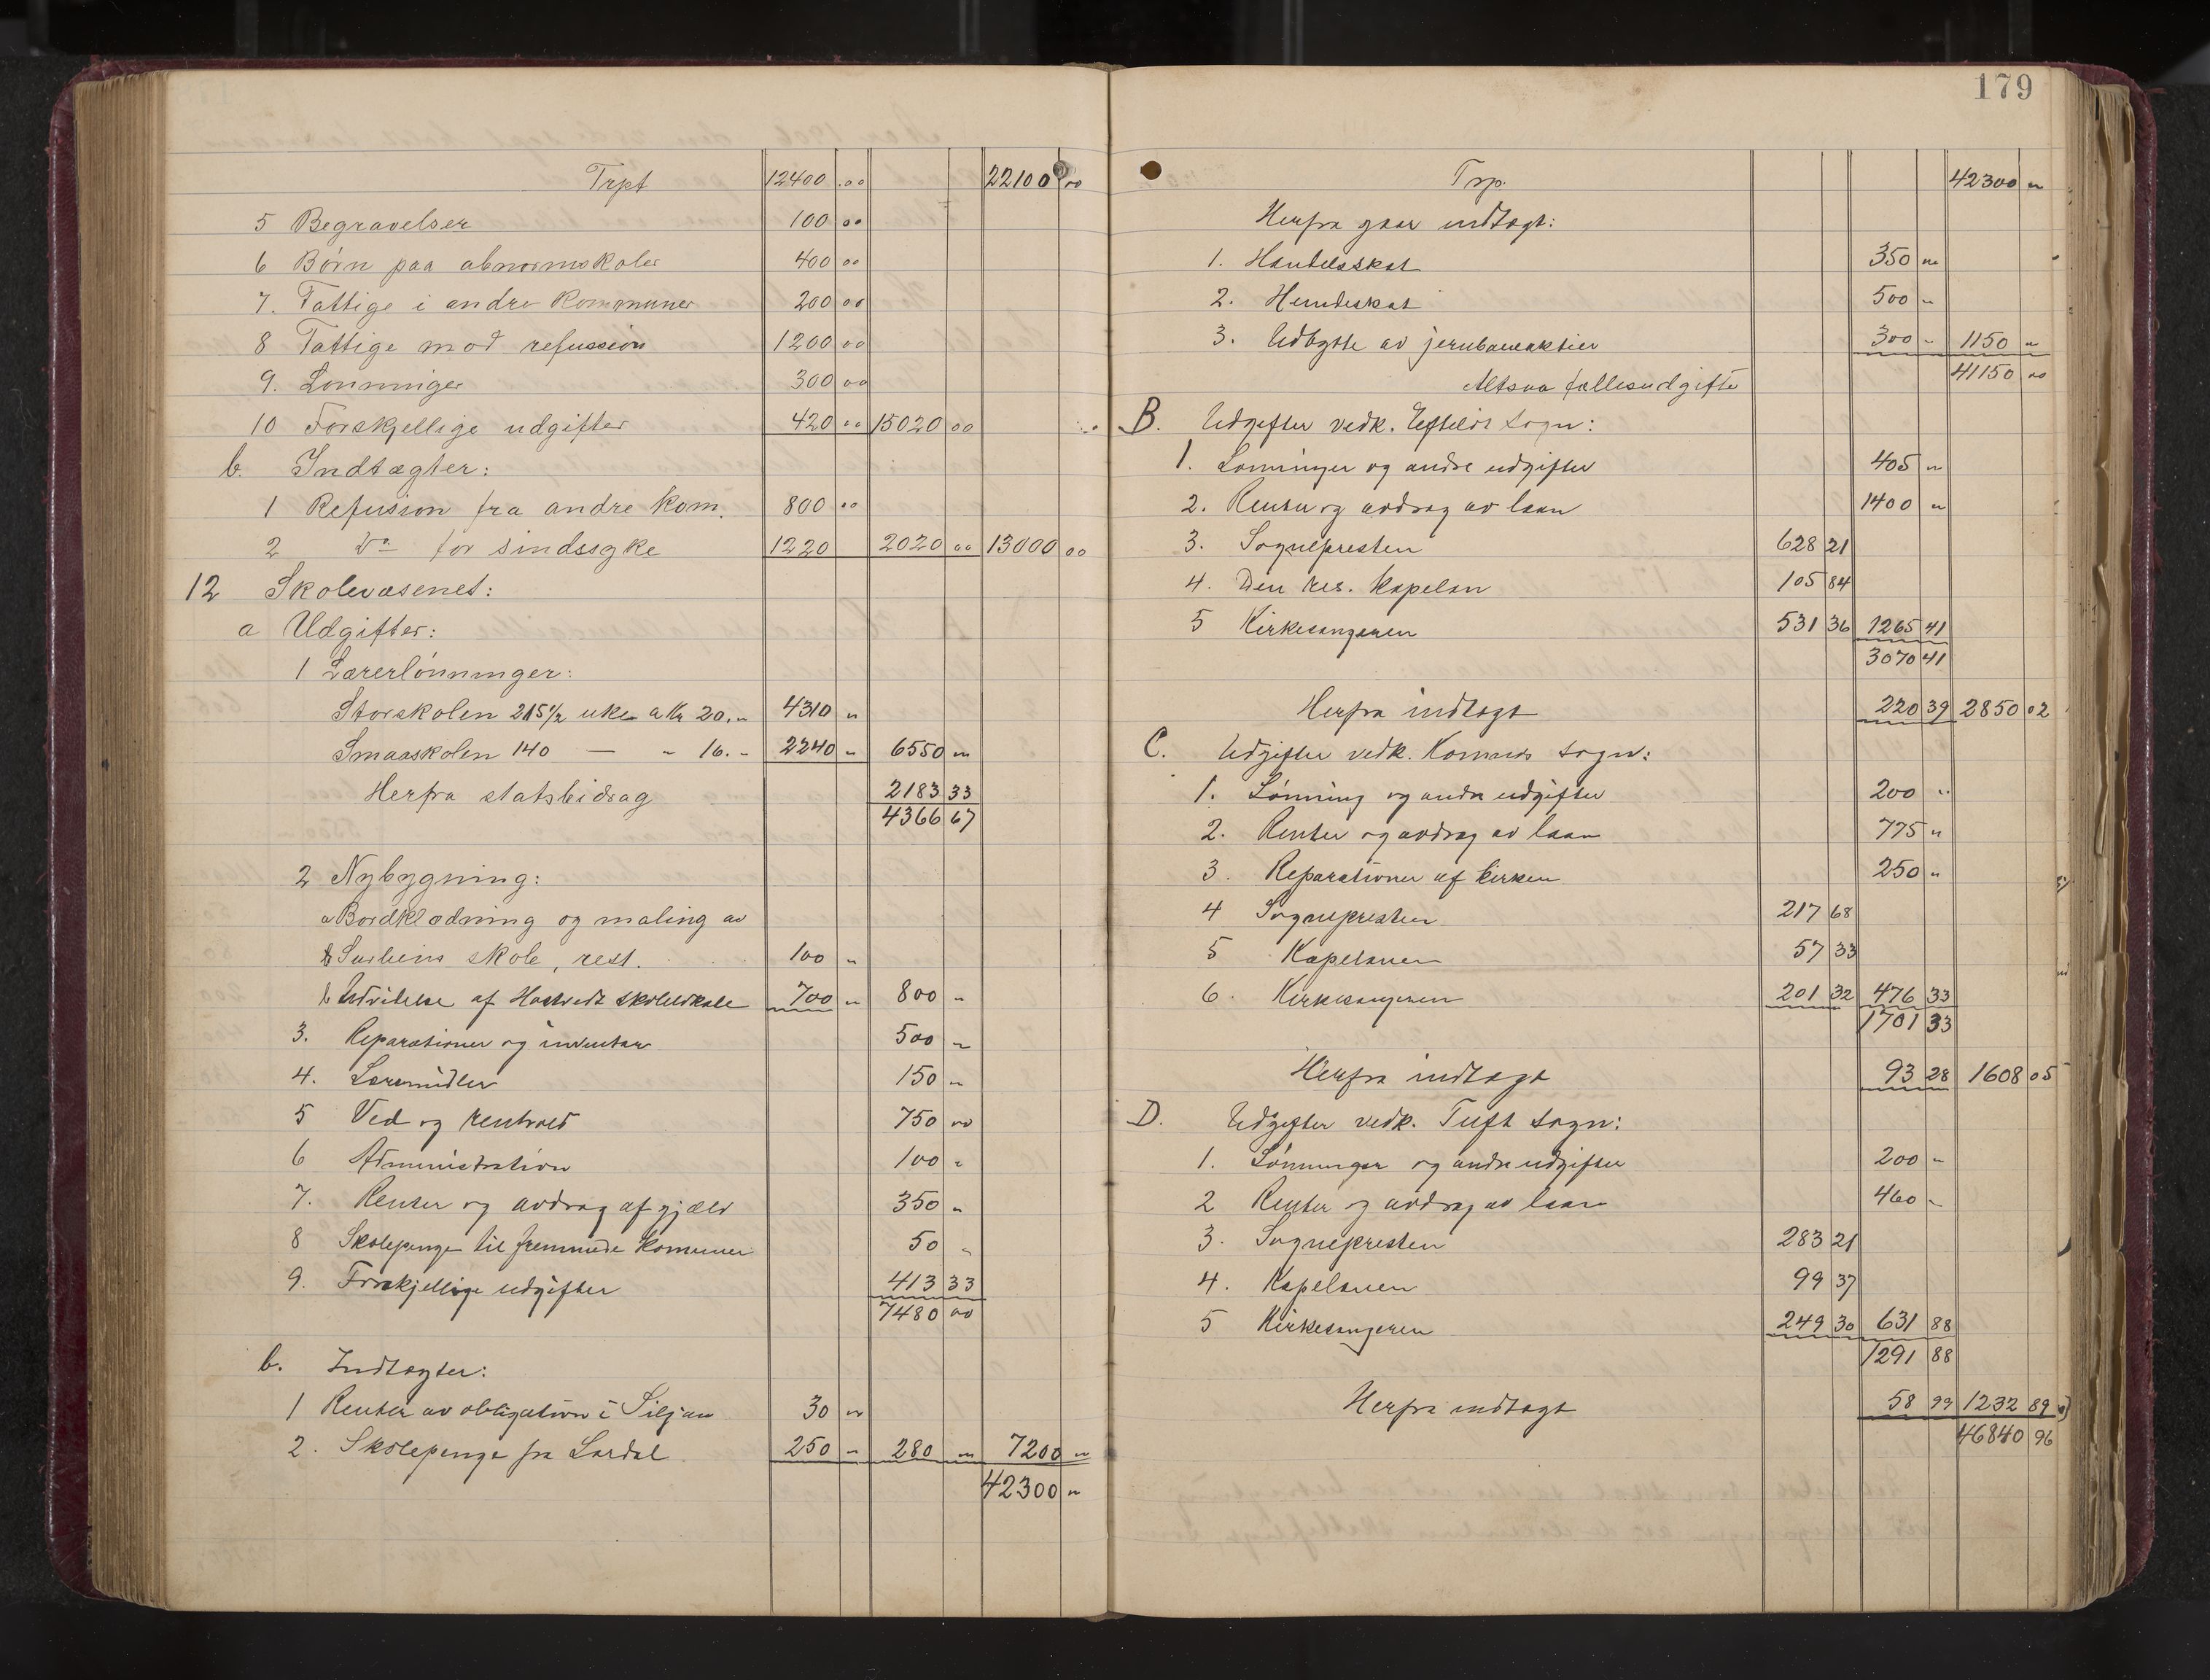 Trpt 12400 00 22100 00
5 Begravelser 100 00
6 Børn paa abnormskoler 400 00
7. Fattige i andre kommuner 200 00
8 Fattige mod refussion 1200 00
9. Lønninger 300 00
10 Forskjellige udgifter 420 00 15020 00
b. Indtægter:
1 Refusion fra andre kom. 800 00
2 Do for sindssyke 1220 2020 00 13000 00
12 Skolevæsenet:
a Udgifter:
1 Lærerlønninger:
Storskolen 215 1/2 uke a Kr 20.„ 4310 „
Smaaskolen 140 — „ 16.- 2240 „ 6550 „
Herfra statsbidrag 2183 33
4366 67
2 Nybygning:
a Bordklædning og maling av
skole, rest. 100 „
b Udvidelse af Hostvedt skolelokale 700 „ 800 „
3. Reparationer og inventar 500 „
4. Læremidler 150 „
5 Ved og renhold 750 00
6 Administration 100 „
7. Renter og avdrag af gjæld 350 „
8 Skolepenge til fremmede kommuner 50 „
9. Forskjellige udgifter 413 33
7480 00
b. Indtægter:
1 Renter av obligation i Siljan 30 „
2. Skolepenge fra Lardal 250 „ 280 „ 7200 „
42300 „
179
Trp. 42300 „
Herfra gaar indtægt:
1. Handelsskat 350 „
2. Hundeskat 500 „
3. Udbytte av jernbaneaktier 300 „ 1150 „
Altsaa fællesudgifte 41150 00
B. Udgifter vedk. Efteløt sogn:
1. Lønninger og andre udgifter 405 „
2. Renter og avdrag av laan 1400 „
3. Sognepresten 628 21
4. Den res. kapelan 105 84
5 Kirkesangeren 531 36 1265 41
3070 41
Herfra indtægt 220 39 2850 02
C. Udgifter vedk. Komnes sogn:
1. Lønning og andre udgifter 200 „
2. Renter og avdrag av laan 775 „
3. Reparationer af kirken 250 „
4 Sognepresten 217 68
5 Kapelanen 57 33
6. Kirkesangeren 201 32 476 33
1701 33
Herfra indtægt 93 28 1608 05
D. Udgifter vedk. Tuft sogn:
1. Lønninger og andre udgifter 200 „
2 Renter og avdrag av laan 460 „
3. Sognepresten 283 21
4. Kapelanen 99 37
5 Kirkesangeren 249 30 631 88
1291 88
Herfra indtægt 58 99 1232 89
46840 96